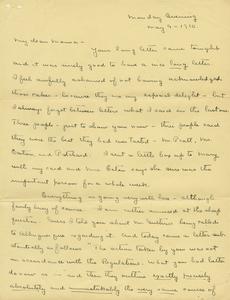 Monday Evening
May 9 - 1910.
My dear Mama -
Your long letter came tonight
and it was surely good to have a nice long letter
I feel awfully ashamed of not having acknowledged
those cakes - because they were my especial delight - but
I always forget between letters what I said in the last one.
Three people - just to show you now - three people said
they were the best they had ever tasted - Mr Pratt, Mr.
and Pritchard. I sent a little box up to Mary
with my card and Mr says she was the
important person for a whole week.
Everything is going very well here - although
fairly busy of course. I am rather amused at the shop
question. Guess I told you about Mr being called
to Albany regarding it. And today came a letter sub-
stantially as follows "The action taken by you was not
in accordance with the Regulations. What you had better
do now is - and then they outline exactly precisely
absolutely and unmistakably the very same course of